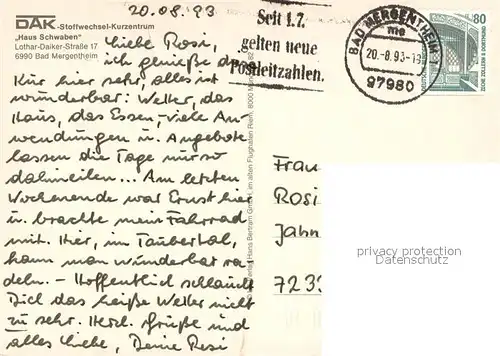 20.08.93
DAK-Stoffwechsel-Kurzentrum
"Haus Schwaben"
Lothar-Daiker-Straße 17
6990 Bad Mergentheim
Liebe Rosi,
ich genieße diese
Kur hier sehr, alles ist
wunderbar: Wetter, das
Haus, das Essen, viele An-
wendungen u. Angebote
lassen die Tage nur so
dahineilen... Am letzten
Wochenende war Ernst hier
u. brachte mein Fahrrad
mit. Hier, im Taubertal,
kann man wunderbar ra-
deln. – Hoffentlich schlaucht
Dich das heiße Wetter nicht
zu sehr. Herzl. Grüße und
alles Liebe, Deine Resi
Seit 1.7.
gelten neue
Postleitzahlen.
BAD MERGENTHEIM 1
me
20.-8.93-19
97980
80
ZECHE ZOLLERN II DORTMUND
Hans Bertram GmbH, im alten Flughafen Riem, 8000 München
Frau
Rosi
Jahn
723
privacy protection
Datenschutz